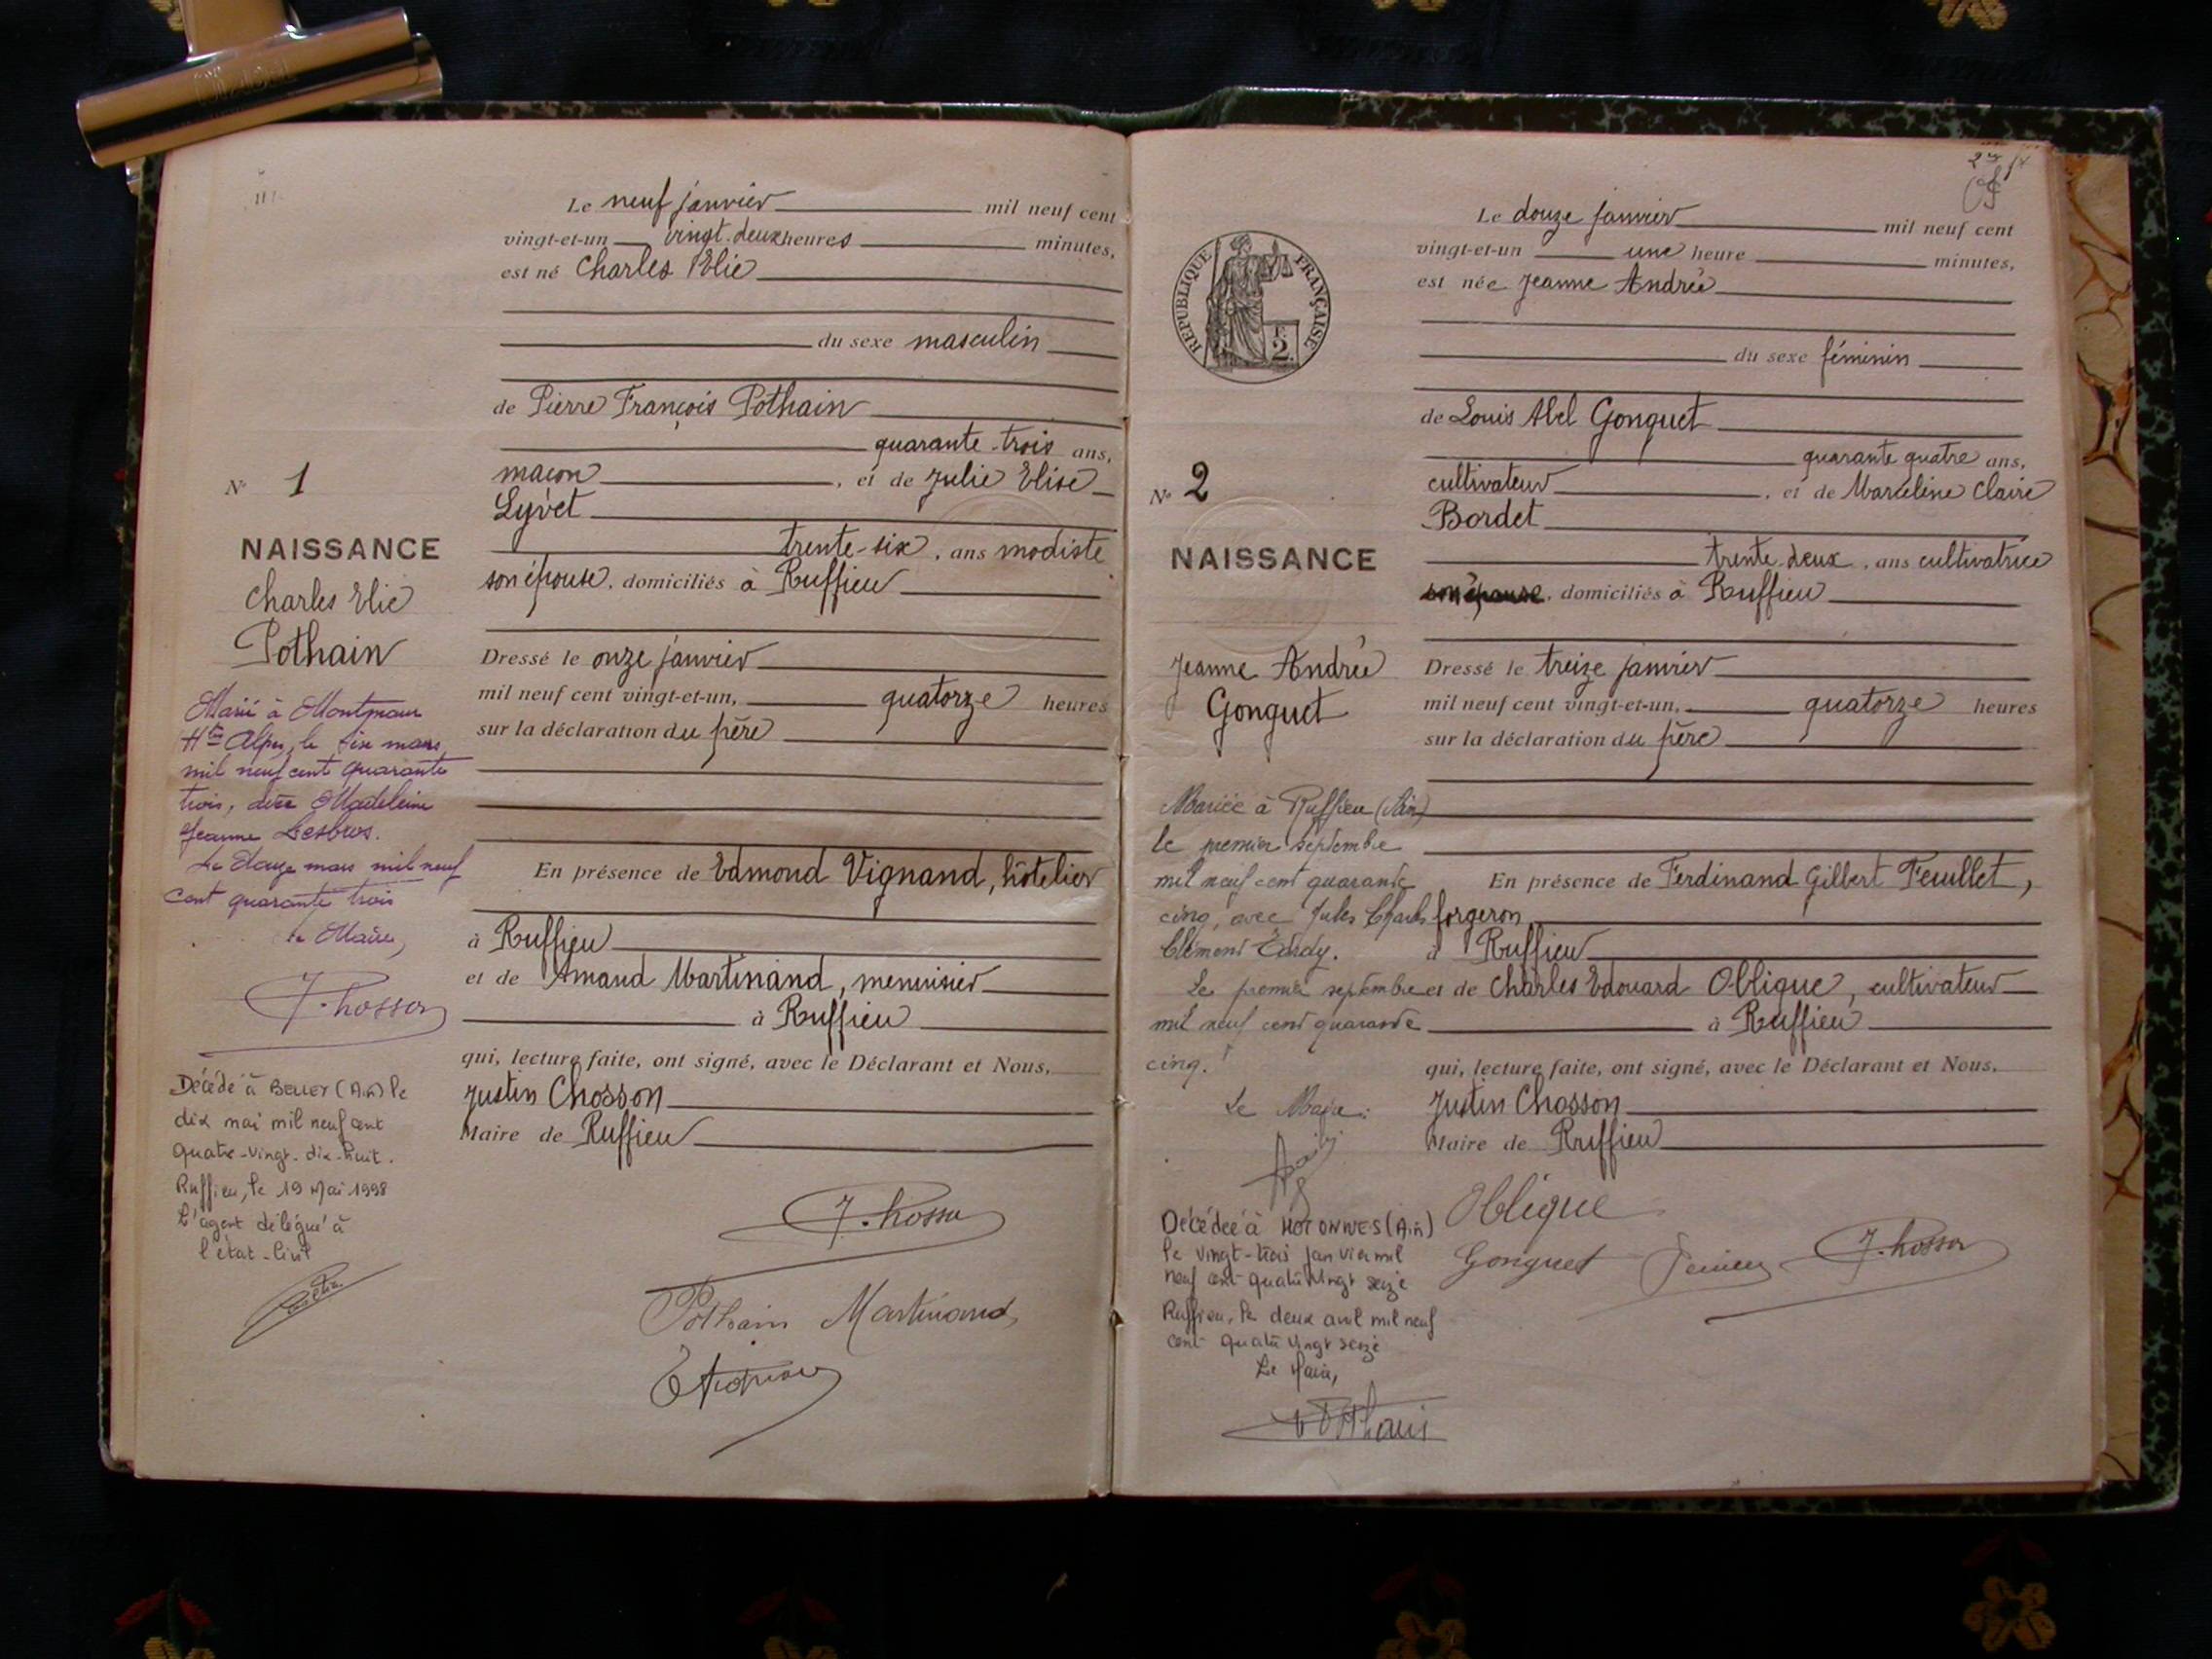 Le neuf janvier mil neuf cent
vingt-et-un vingt-deux heures minutes,
est né Charles Elie
du sexe masculin
de Pierre François Pothain
quarante-trois ans,
maçon, et de Julie Elise
Lyvet
trente-six, ans modiste
son épouse, domiciliés à Ruffieu
Dressé le onze janvier
mil neuf cent vingt-et-un, quatorze heures
sur la déclaration du père
En présence de Edmond Vignand, hôtelier
à Ruffieu
et de Amand Martinand, menuisier
à Ruffieu
qui, lecture faite, ont signé, avec le Déclarant et Nous,
Justin Chosson
Maire de Ruffieu
J. Chosson
Pothain Martinand
N° 1
NAISSANCE
Charles Elie
Pothain
Marié à Montmaur
Htes Alpes, le six mars
mil neuf cent quarante
trois, avec Madeleine
Jeanne Lesbros.
Le douze mars mil neuf
cent quarante trois
Le Maire,
J. Chosson
Décédé à BELLEY (Ain) le
dix mai mil neuf cent
quatre-vingt-dix-huit.
Ruffieu, le 19 Mai 1998
L'agent délégué à
l'état-civil
REPUBLIQUE FRANÇAISE
2
Le douze janvier mil neuf cent
vingt-et-un une heure minutes,
est née Jeanne Andrée
du sexe féminin
de Louis Abel Gonguet
quarante quatre ans,
cultivateur, et de Marceline Claire
Bordet
trente-deux, ans cultivatrice
son épouse, domiciliés à Ruffieu
Dressé le treize janvier
mil neuf cent vingt-et-un, quatorze heures
sur la déclaration du père
En présence de Ferdinand Gilbert Feuillet,
forgeron
à Ruffieu
et de Charles Edouard Oblique, cultivateur
à Ruffieu
qui, lecture faite, ont signé, avec le Déclarant et Nous,
Justin Chosson
Maire de Ruffieu
Oblique
Gonguet J. Chosson
N° 2
NAISSANCE
Jeanne Andrée
Gonguet
Mariée à Ruffieu (Ain)
le premier septembre
mil neuf cent quarante
cinq, avec Jules Charles
Clément
Le premier septembre
mil neuf cent quarante
cinq.
Le Maire:
Décédée à HOTONNES (Ain)
le vingt-trois janvier mil
neuf cent quatre vingt seize
Ruffieu, le deux avril mil neuf
cent quatre vingt seize
Le Maire,